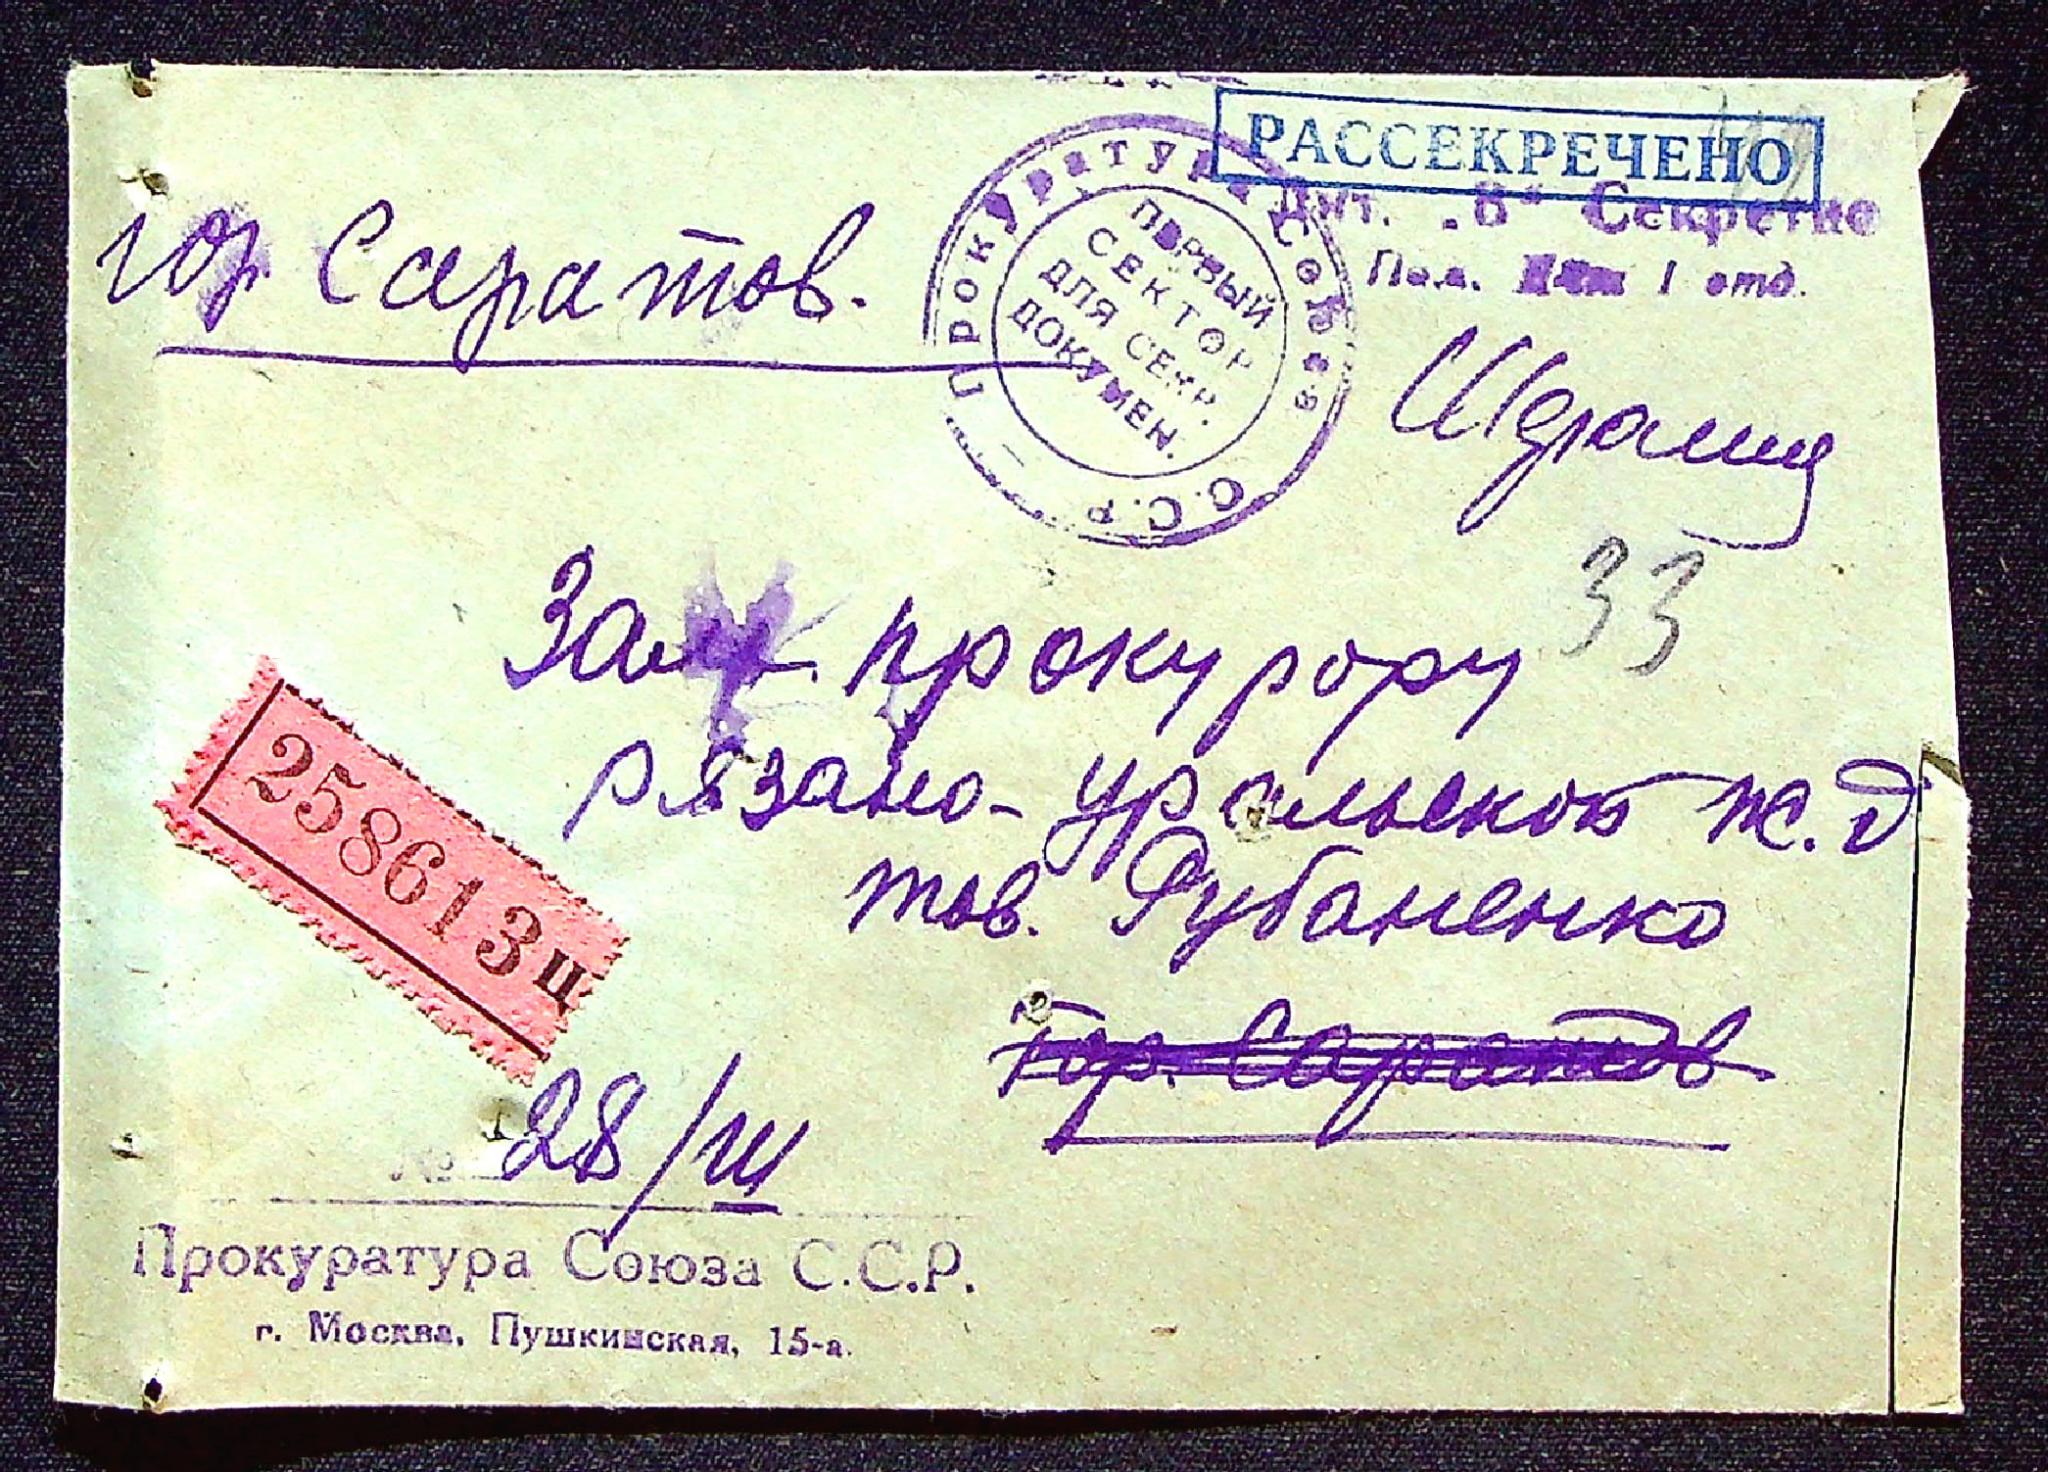 РАССЕКРЕЧЕНО
Лит. „В" Секретно
Пол. 1 отд.
гор. Саратов.
Прокуратура Союза С.С.Р.
ПЕРВЫЙ
СЕКТОР
ДЛЯ СЕКР.
ДОКУМЕН.
33
Зам. прокурору
рязано-уральской ж.д
тов. Рубаненко
гор. Саратов
258613 Ц
№ 28/III
Прокуратура Союза С.С.Р.
г. Москва, Пушкинская, 15-а.